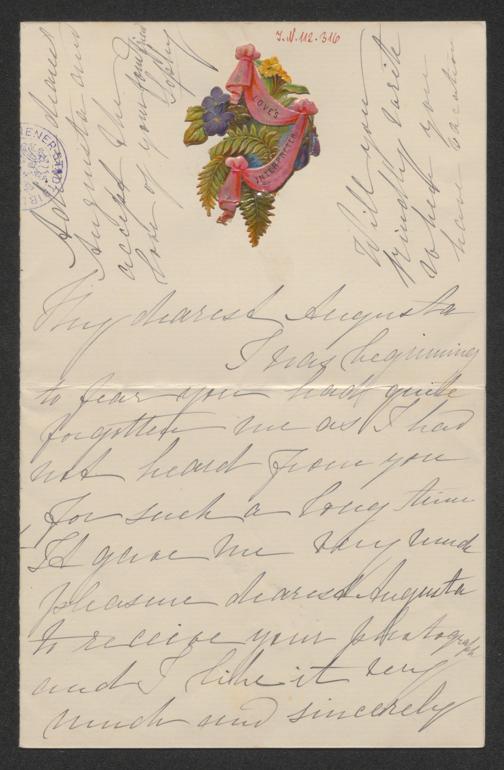 J.N. 112.316
LOVE'S
INTERPRETER
My dearest Augusta
I was beginning
to fear you had quite
forgotten me as I had
not heard from you
for such a long time
It gave me very much
pleasure dearest Augusta
to receive your photograph
and I like it very
much and sincerely
Will you
kindly write
when you
have
Augusta and
accept the
love of your
Sophy